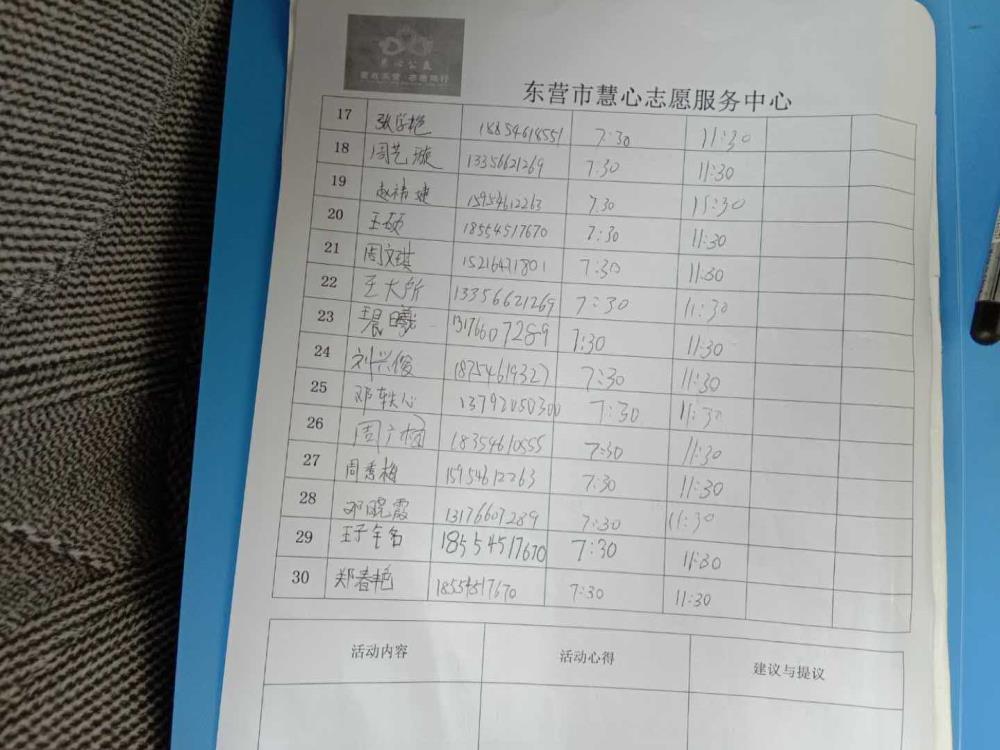 慧心公益
东营市慧心志愿服务中心
17 张学艳 18854614551 7:30 11:30
18 周艺璇 13356621269 7:30 11:30
19 赵祎婕 15954612263 7:30 11:30
20 王硕 18554517670 7:30 11:30
21 周文琪 15216471801 7:30 11:30
22 王大所 13356621269 7:30 11:30
23 晨曦 13176607289 7:30 11:30
24 刘兴俊 18754619327 7:30 11:30
25 邓轶心 13792050300 7:30 11:30
26 周广 18354610555 7:30 11:30
27 周秀梅 15954612263 7:30 11:30
28 邓晓霞 13176607289 7:30 11:30
29 王子 18554517670 7:30 11:30
30 郑春艳 18554517670 7:30 11:30
活动内容 活动心得 建议与提议